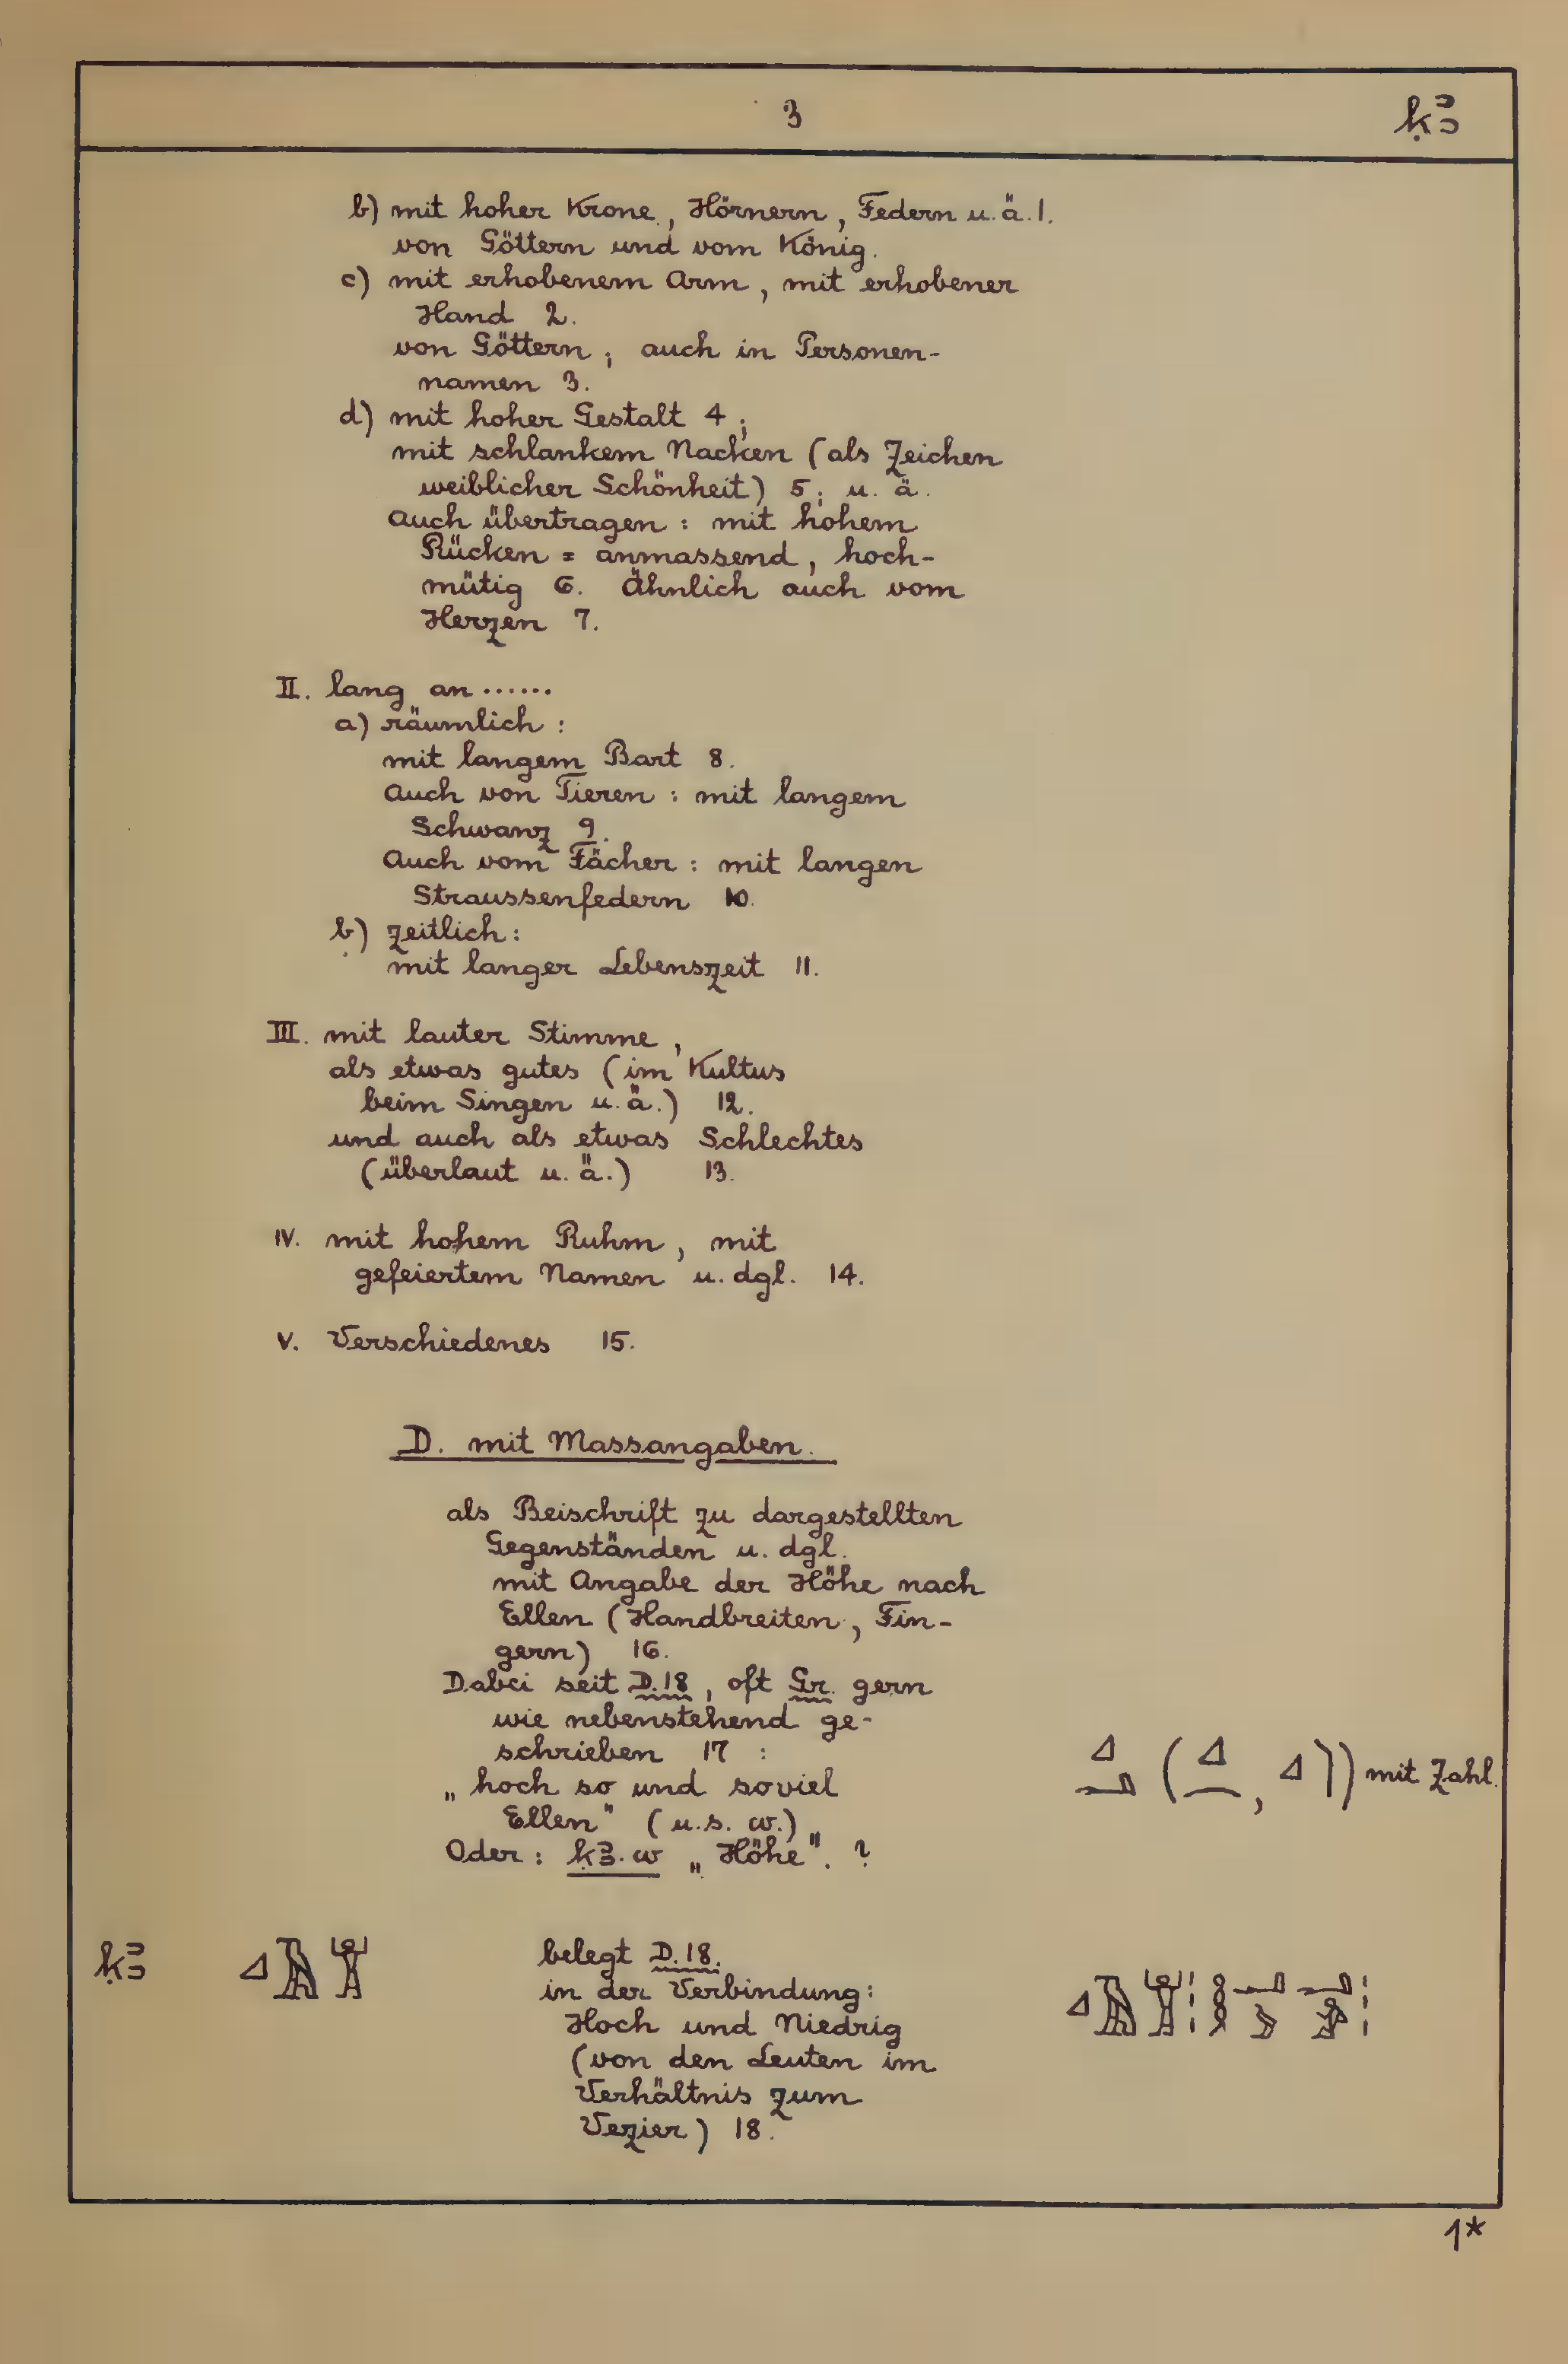 3 ḳꜣ
b) mit hoher Krone, Hörnern, Federn u. ä. 1.
von Göttern und vom König.
c) mit erhobenem Arm, mit erhobener
Hand 2.
von Göttern; auch in Personen-
namen 3.
d) mit hoher Gestalt 4;
mit schlankem Nacken (als Zeichen
weiblicher Schönheit) 5; u. ä.
Auch übertragen: mit hohem
Rücken = anmassend, hoch-
mütig 6. Ähnlich auch vom
Herzen 7.
II. lang an ......
a) räumlich:
mit langem Bart 8.
Auch von Tieren: mit langem
Schwanz 9.
Auch vom Fächer: mit langen
Straussenfedern 10.
b) zeitlich:
mit langer Lebenszeit 11.
III. mit lauter Stimme,
als etwas gutes (im Kultus
beim Singen u. ä.) 12.
und auch als etwas Schlechtes
(überlaut u. ä.) 13.
IV. mit hohem Ruhm, mit
gefeiertem Namen u. dgl. 14.
V. Verschiedenes 15.
D. mit Massangaben.
als Beischrift zu dargestellten
Gegenständen u. dgl.
mit Angabe der Höhe nach
Ellen (Handbreiten, Fin-
gern) 16.
Dabei seit D. 18, oft Gr. gern
wie nebenstehend ge-
schrieben 17:
„hoch so und soviel mit Zahl.
Ellen" (u.s.w.)
Oder: ḳꜣ.w „Höhe". ?
ḳꜣ belegt D. 18.
in der Verbindung:
Hoch und Niedrig
(von den Leuten im
Verhältnis zum
Vezier) 18.
1*